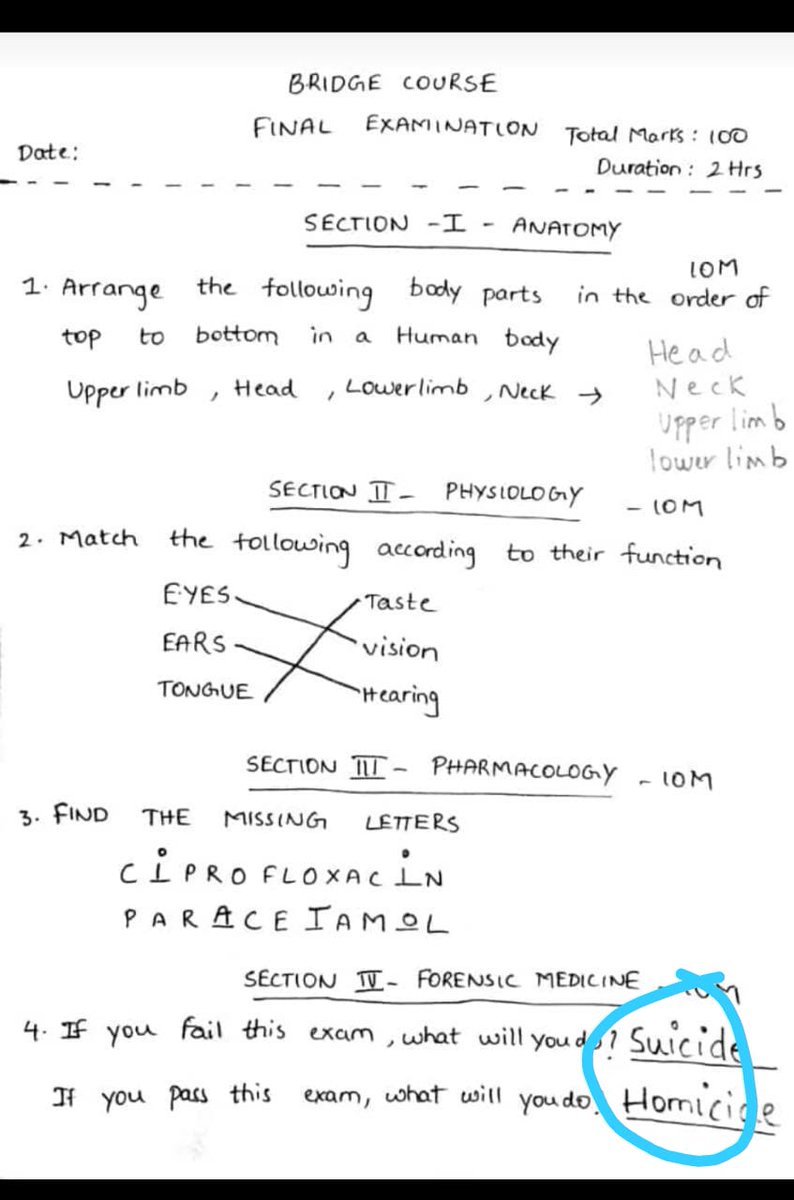 BRIDGE COURSE
FINAL EXAMINATION Total Marks : 100
Date:
Duration : 2 Hrs
SECTION -I - ANATOMY
10M
1. Arrange the following body parts in the order of
top to bottom in a Human body
Upper limb , Head , Lowerlimb , Neck →
Head
Neck
Upper limb
lower limb
SECTION II - PHYSIOLOGY - 10M
2. Match the following according to their function
EYES Taste
EARS vision
TONGUE Hearing
SECTION III - PHARMACOLOGY - 10M
3. FIND THE MISSING LETTERS
CiPROFLOXACiN
PARACETAMOL
SECTION IV - FORENSIC MEDICINE - 10M
4. If you fail this exam , what will you do? Suicide
If you pass this exam, what will you do. Homicide